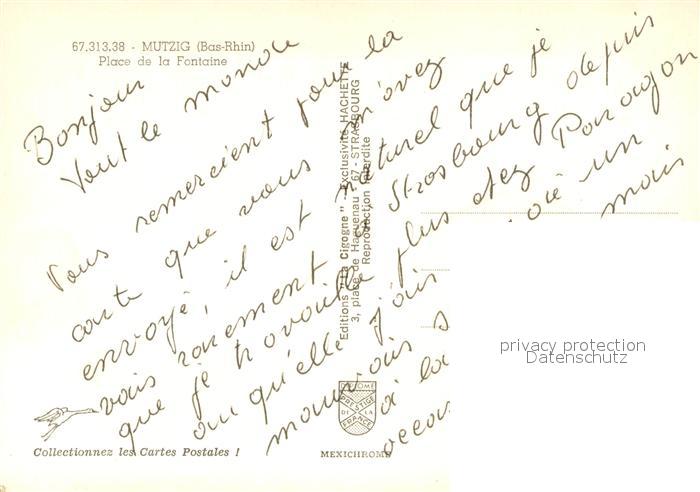 67.313.38 - MUTZIG (Bas-Rhin)
Place de la Fontaine
Bonjour
tout le monde
Vous remercient pour la
carte que vous m'avez
envoyé, il est naturel que je
vais rarement à Strasbourg depuis
que je travaille plus chez Parargon
ou qu'elle j'ais où un
mauvais s mais
à la
occas
Editions "La Cigogne" - Exclusivité HACHETTE
3, place de Haguenau - 67 - STRASBOURG
Reproduction Interdite
privacy protection
Datenschutz
PRESTIGE
DE LA
FRANCE
Collectionnez les Cartes Postales !
MEXICHROME